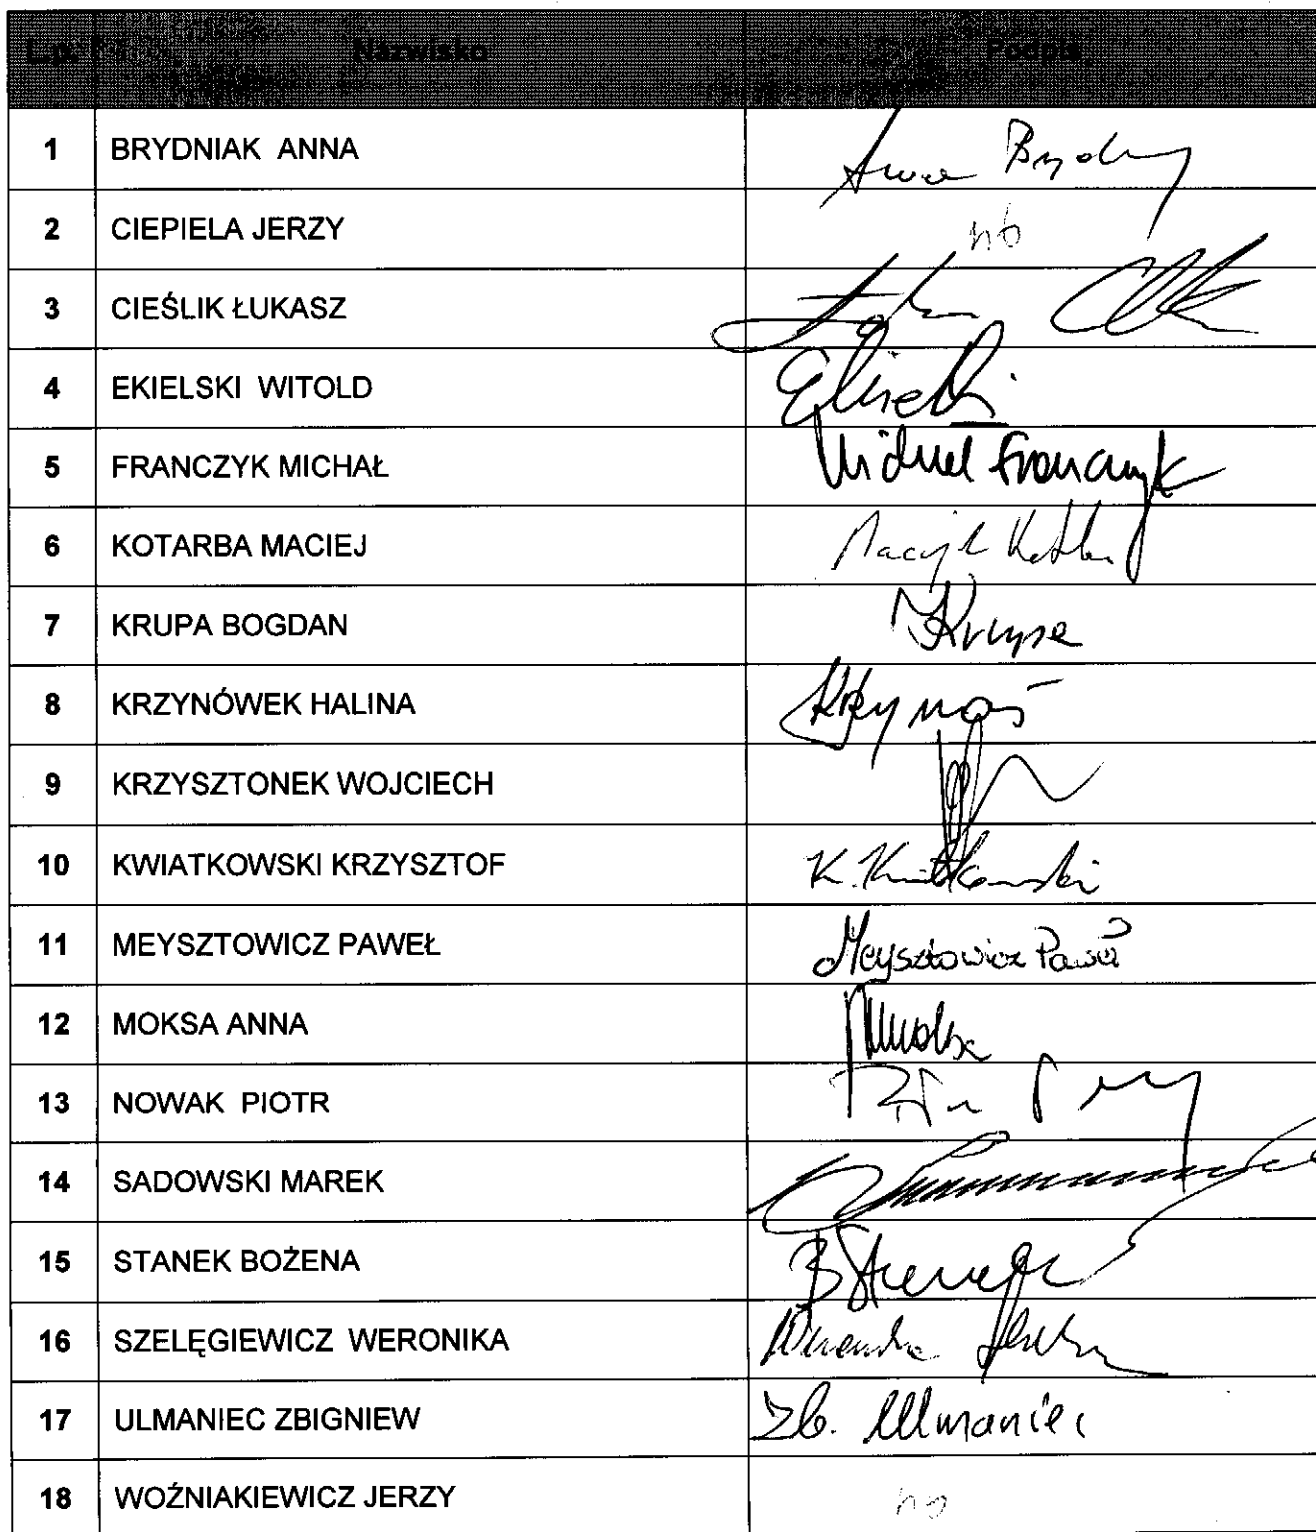 L.p. Nazwisko Podpis
1 BRYDNIAK ANNA
2 CIEPIELA JERZY nb
3 CIEŚLIK ŁUKASZ
4 EKIELSKI WITOLD
5 FRANCZYK MICHAŁ Michał Franczyk
6 KOTARBA MACIEJ
7 KRUPA BOGDAN Krupa
8 KRZYNÓWEK HALINA
9 KRZYSZTONEK WOJCIECH
10 KWIATKOWSKI KRZYSZTOF K. Kwiatkowski
11 MEYSZTOWICZ PAWEŁ Meysztowicz Paweł
12 MOKSA ANNA
13 NOWAK PIOTR
14 SADOWSKI MAREK
15 STANEK BOŻENA B Stanek
16 SZELĘGIEWICZ WERONIKA
17 ULMANIEC ZBIGNIEW Zb. Ulmaniec
18 WOŹNIAKIEWICZ JERZY nb